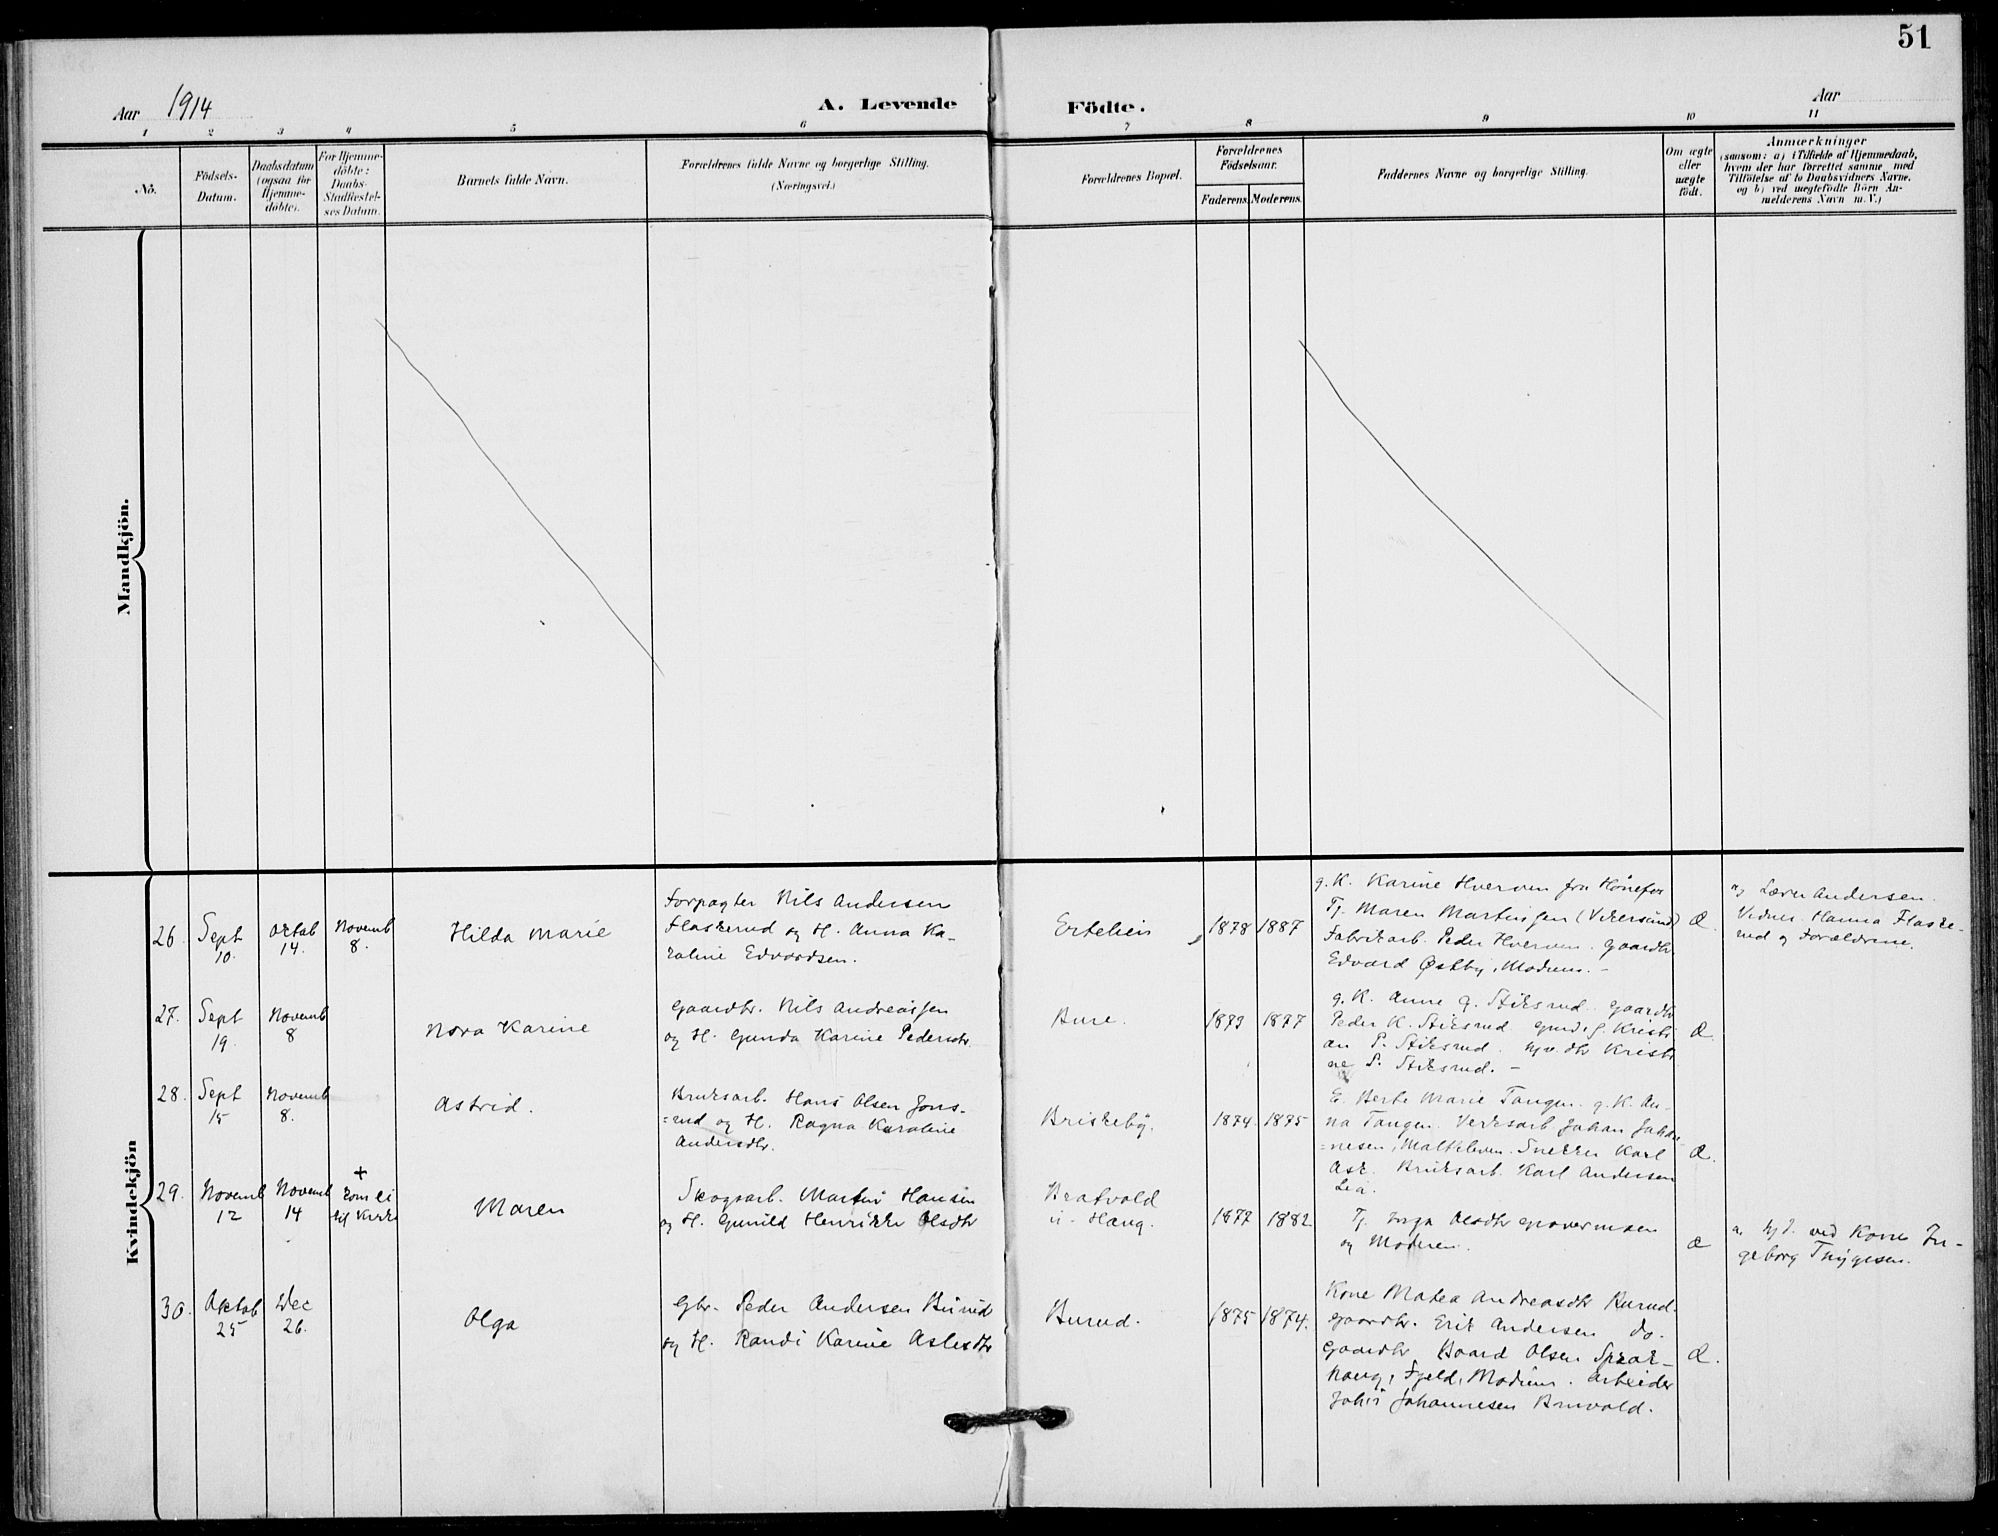 51
Aar 1914
A. Levende
Födte.
Aar
1 2 3 4 5 6 7 8 9 10 11
No.
Födsels-
Datum.
Daabsdatum
(ogsaa for
Hjemme-
döbte).
For Hjemme-
döbte:
Daabs-
Stadfæstel-
ses Datum.
Barnets fulde Navn.
Forældrenes fulde Navne og borgerlige Stilling.
(Næringsvei.)
Forældrenes Bopæl.
Forældrenes
Födselsaar.
Faderens. Moderens.
Faddernes Navne og borgerlige Stilling.
Om ægte
eller
uægte
født.
Anmærkninger
(saasom: a) i Tilfælde af Hjemmedaab,
hvem der har forrettet samme med
Tilföielse af to Daabsvidners Navne,
og b) ved uægtefödte Börn An-
melderens Navn m. V.)
Mandkjön.
Kvindekjön
26.
Sept
10.
Oktob
14.
Novemb
8.
Hilda Marie
Forpagter Nils Andersen
Flaskerud og H. Anna Ka-
roline Edvardsen.
Ertelien
1878 1887
g. K. Karine Hverven fra Hönefos
Tj. Maren Martinsen (Vikersund)
Fabrikarb. Peder Hverven. Gaardbr.
Edvard Østby, Modum. -
Æ.
a, Lærer Andersen.
Vidner. Hanna Flaske-
rud og Forældrene.
27.
Sept
19.
Novemb
8
Nora Karine
Gaardbr. Nils Andreassen
og H. Gunda Karine Pedersdtr.
Bure.
1873 1877
g. K. Anne G. Stiksrud. Gaardbr
Peder K. Stiksrud Gmd. S. Kristi
an P. Stiksrud. Hjv. dtr Kristi
ne P. Stiksrud. -
Æ.
28.
Sept
15
Novemb
8.
Astrid.
Bruksarb. Hans Olsen Jons-
=rud og H. Ragna Karoline
Andersdtr.
Briskeby.
1874. 1875
E. Berte Marie Tangen. g. K. An-
na Tangen. Verksarb Johan Johan-
=nesen, Snekker Karl
Ask. Bruksarb. Karl Andersen
Lia.
Æ.
29.
Novemb
12
Novemb
14
+
Kom ei
til Kirke
Maren
Skogsarb. Martin Hansen
og H. Gunild Henrikke Olsdtr
Bratvold
u. Haug.
1877 1882.
Tj. Inga Olsdtr
og Moderen.
Æ
a. Hjd. ved Kone In-
geborg Thygesen.
30.
Oktob
25
Dec
26.
Olga
Gbr. Peder Andersen Burud
og H. Randi Karine Aslesdtr
Burud.
1875 1874.
Kone Matea Andreasdtr Burud.
Gaardbr. Erik Andersen do.
Gaardbr Baard Olsen
haug, Fjeld, Modum. Arbeider
Johs Johannesen Bruvold.
Æ.